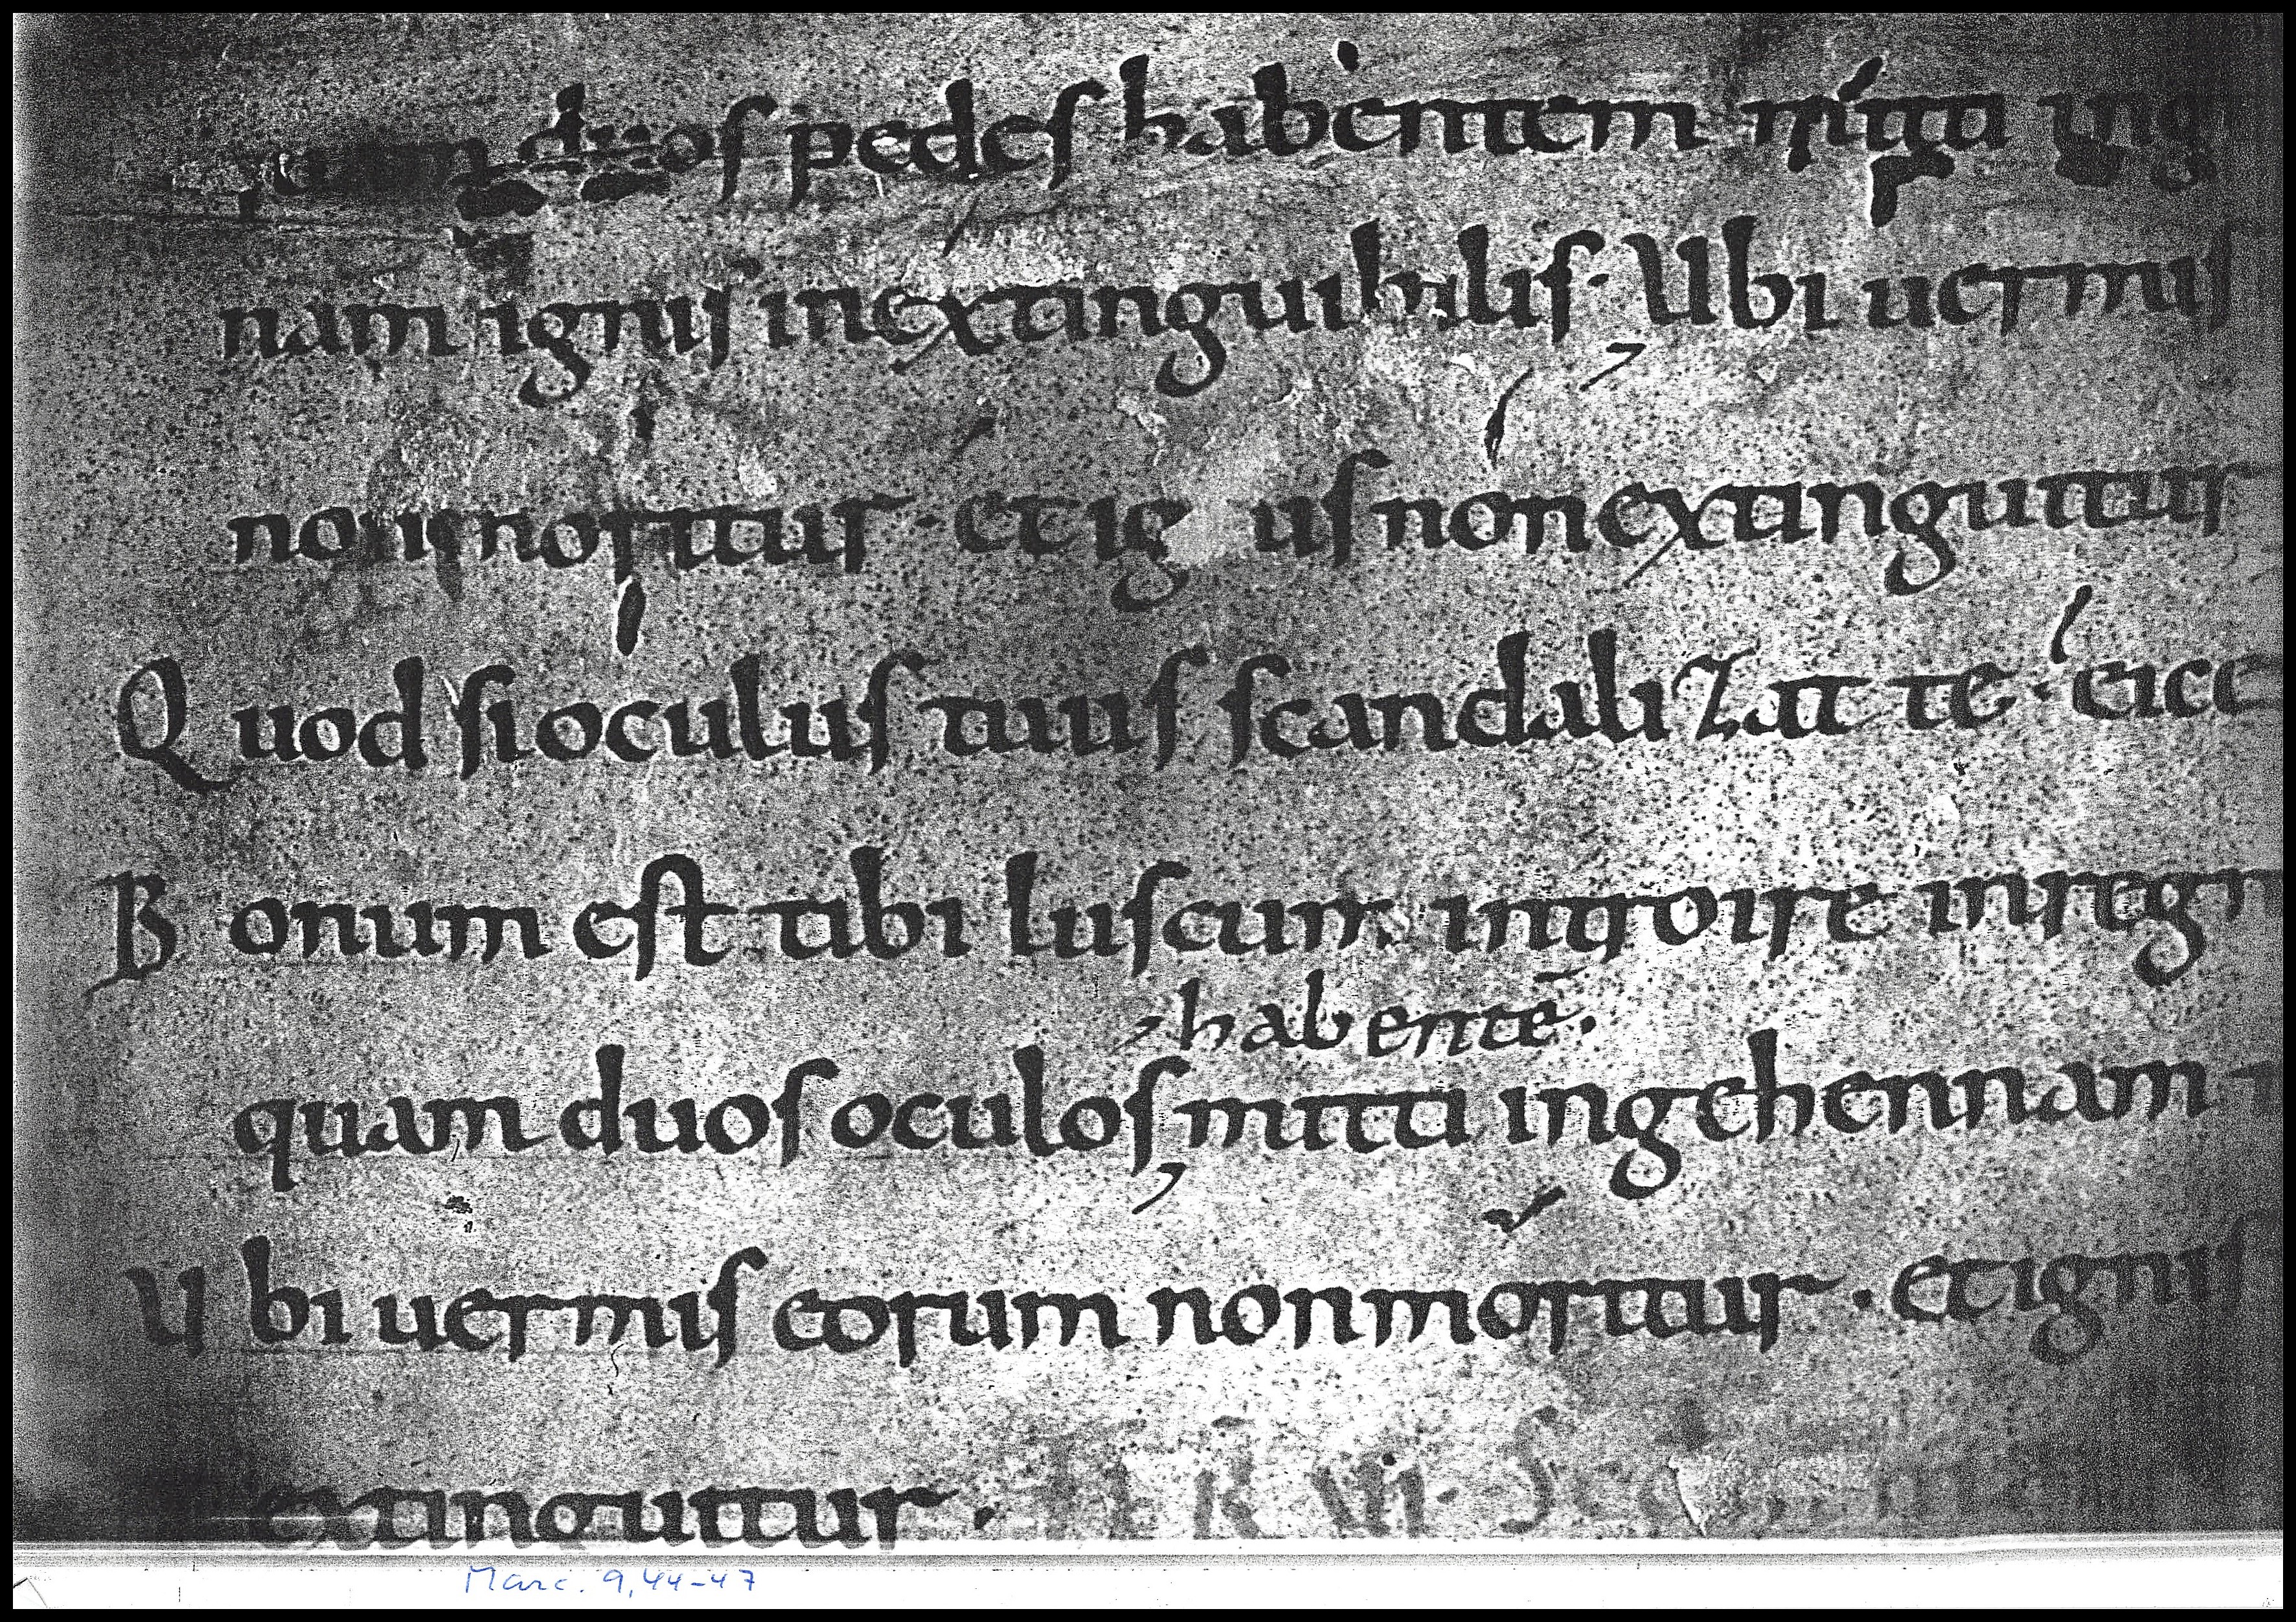 duos pedes habentem mitti ing
nam ignis inextinguibilis. Ubi uermis
non moritur. et ig us non extinguitur
Quod si oculus tuus scandalizat te. eice
Bonum est tibi luscum introire in regn
habentē.
quam duos oculos mitti in gehennam
Ubi uermis eorum non moritur. et ignis
extinguitur.
Marc. 9,44-47